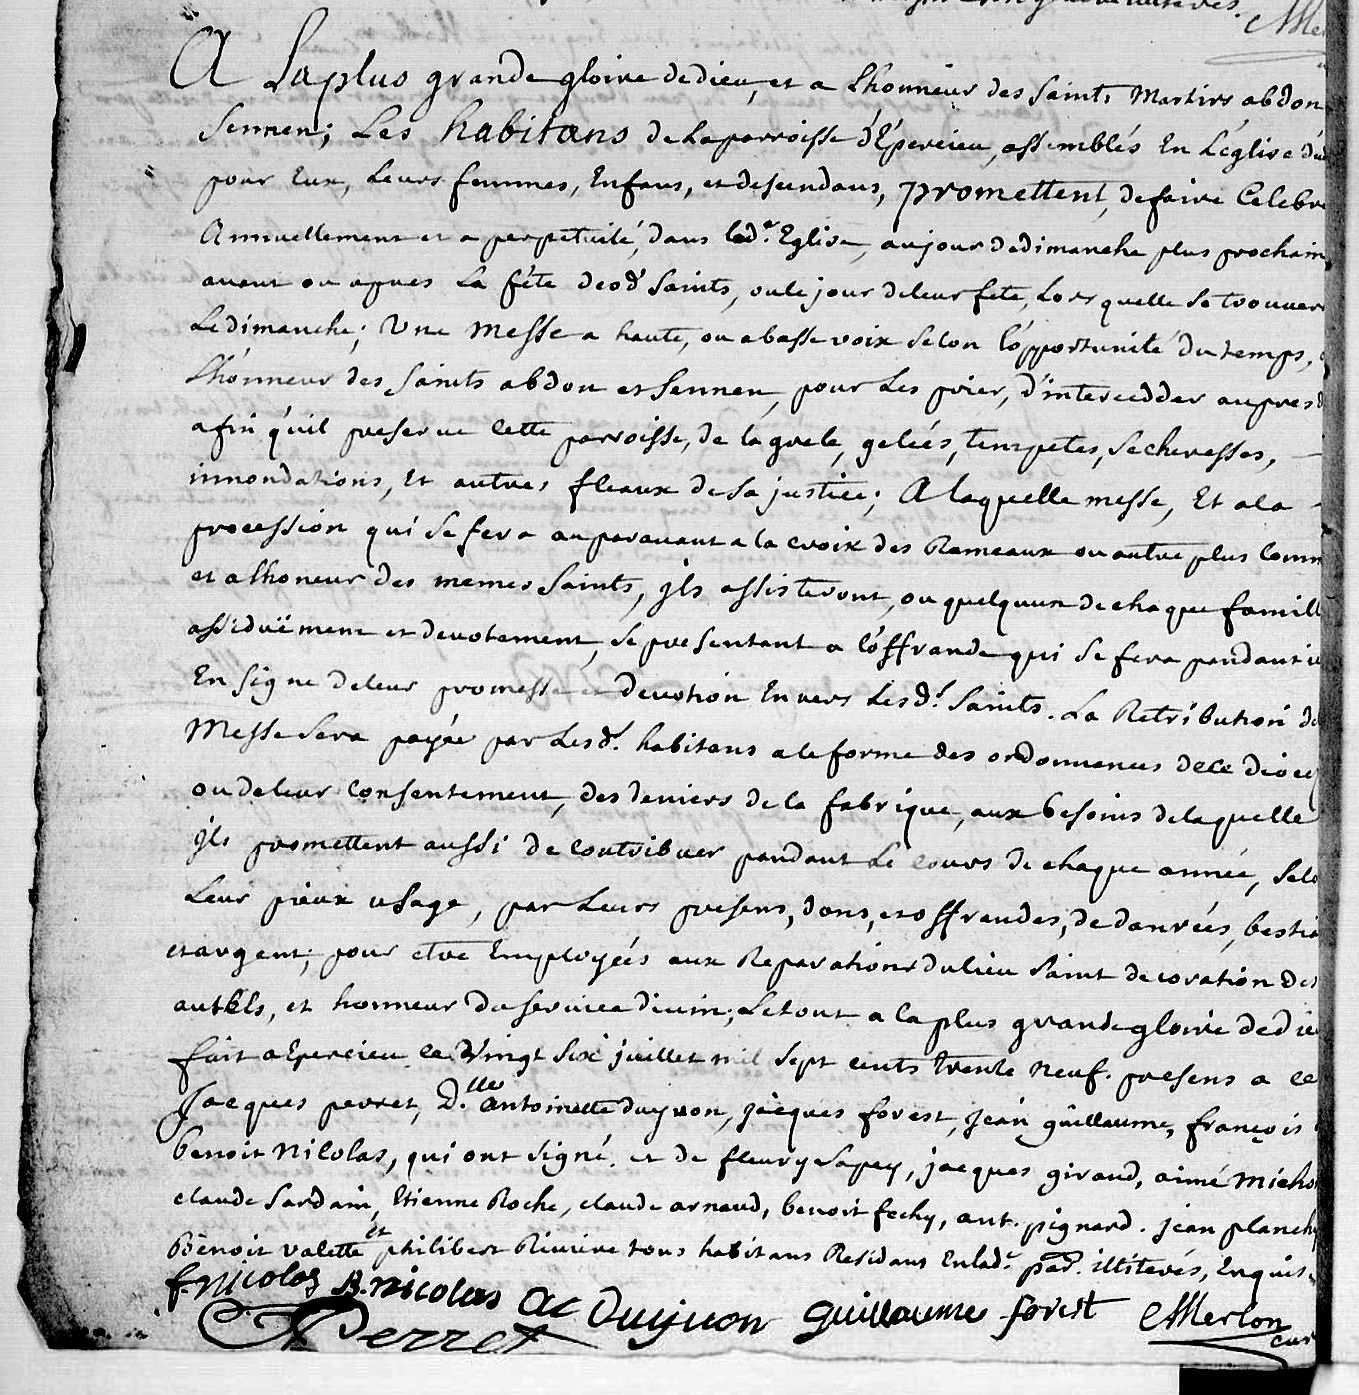 A La plus grande gloire de dieu, et a Lhonneur des saints Martirs abdon
Sennen; Les habitans de La parroisse d'Épercieu, assemblés En L'église
pour Eux, Leurs femmes, Enfans, et descendans, promettent, de faire Celebr
Annuellement et a perpetuité, dans lad.e Eglise, au jour de dimanche plus prochain
avant ou apres La féte desd. Saints, ou le jour de leur fete, Lors quelle se trouver
Le dimanche; Une Messe a haute, ou a basse voix selon l'opportunité du temps,
Lhonneur des saints abdon et Sennen, pour Les prier, d'interceder aupres
afin q'uil preserve cette parroisse, de la grele, gelées, tempetes, secheresses,
innondations, Et autres fleaux de sa justice; A laquelle messe, Et a la
procession qui se fera au paravant a la croix des Rameaux ou autre plus comm
et a Lhoneur des memes Saints, jls assisteront, ou quelquun de chaque famill
assiduëment et devotement, se presentant a l'offrande qui se fera pandant
En signe de leur promesse et devotion Envers Lesd.s Saints. La Retribution de
Messe sera payée par Lesd. habitans a la forme des ordonnances de ce dioce
ou de leur consentement, des deniers de la fabrique, aux besoins de laquelle
jls promettent aussi de contribuer pandant Le cours de chaque année, selo
Leur pieux usage, par Leurs presens, dons, et offrandes, de danrées, bestia
et argent; pour etre Employées aux Reparations du lieu saint decoration des
autels, et honneur du service divin; Le tout a la plus grande gloire de die
fait a Epercieu ce Vingt six juillet mil sept cents trente neuf. presens a ce
Jacques perret, D.lle antoinette duguon, jacques forest, jean guillaume, françois
benoit nicolas, qui ont signé. et de fleury sapey, jacques giraud, aimé micho
claude Sardain, Etienne Roche, claude arnaud, benoit fechy, ant. pignard. jean planch
Benoit valette et philibert Riviere tous habitans Residans En lad.e par. illiterés, Enquis
f. nicolas B. nicolas ac Duguon guillaume forest Merlon
Perret cur